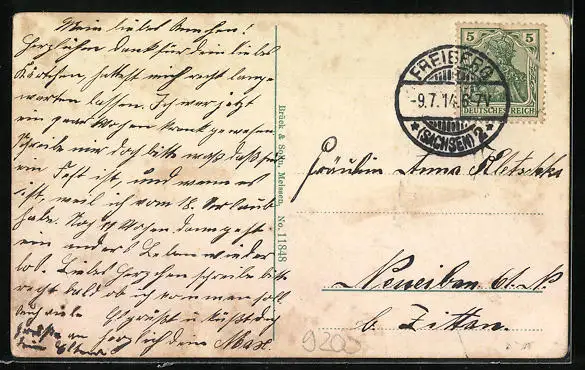 Mein liebes Annchen!
Herzlichen Dank für dein liebes
Kärtchen, hattest mich recht lange
warten lassen. Ich war jetzt
ein paar Wochen krank gewesen
Schreibe mir doch bitte was daß für
ein Fest ist, und wann es
ist, weil ich vom 18. Urlaub
habe. Noch 14 Wochen dann geht
ein anders Leben wieder
los. Liebes Herzchen schreibe bitte
recht bald ob ich kommen soll
Gegrüßt u. Küßt dich
herzlich dein Max.
Grüße an
deine Eltern
Brück & Sohn, Meissen. No. 11848
5 5
DEUTSCHES REICH
FREIBERG
-9.7.14. 6-7N
*(SACHSEN) 2*
Fräulein Anna
Neueibau
b. Zittau.
9200